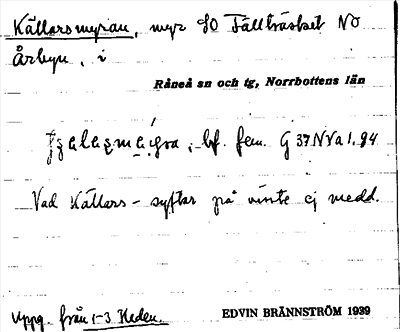 Källarsmyran, myr SO Fällträsket NV
Årbyn, i
Råneå sn och tg, Norrbottens län
bf. fem. G 37 N V a 1. 94
Vad Källars- syftar på visste ej medd.
Uppg. från 1-3 Heden.
EDVIN BRÄNNSTRÖM 1939